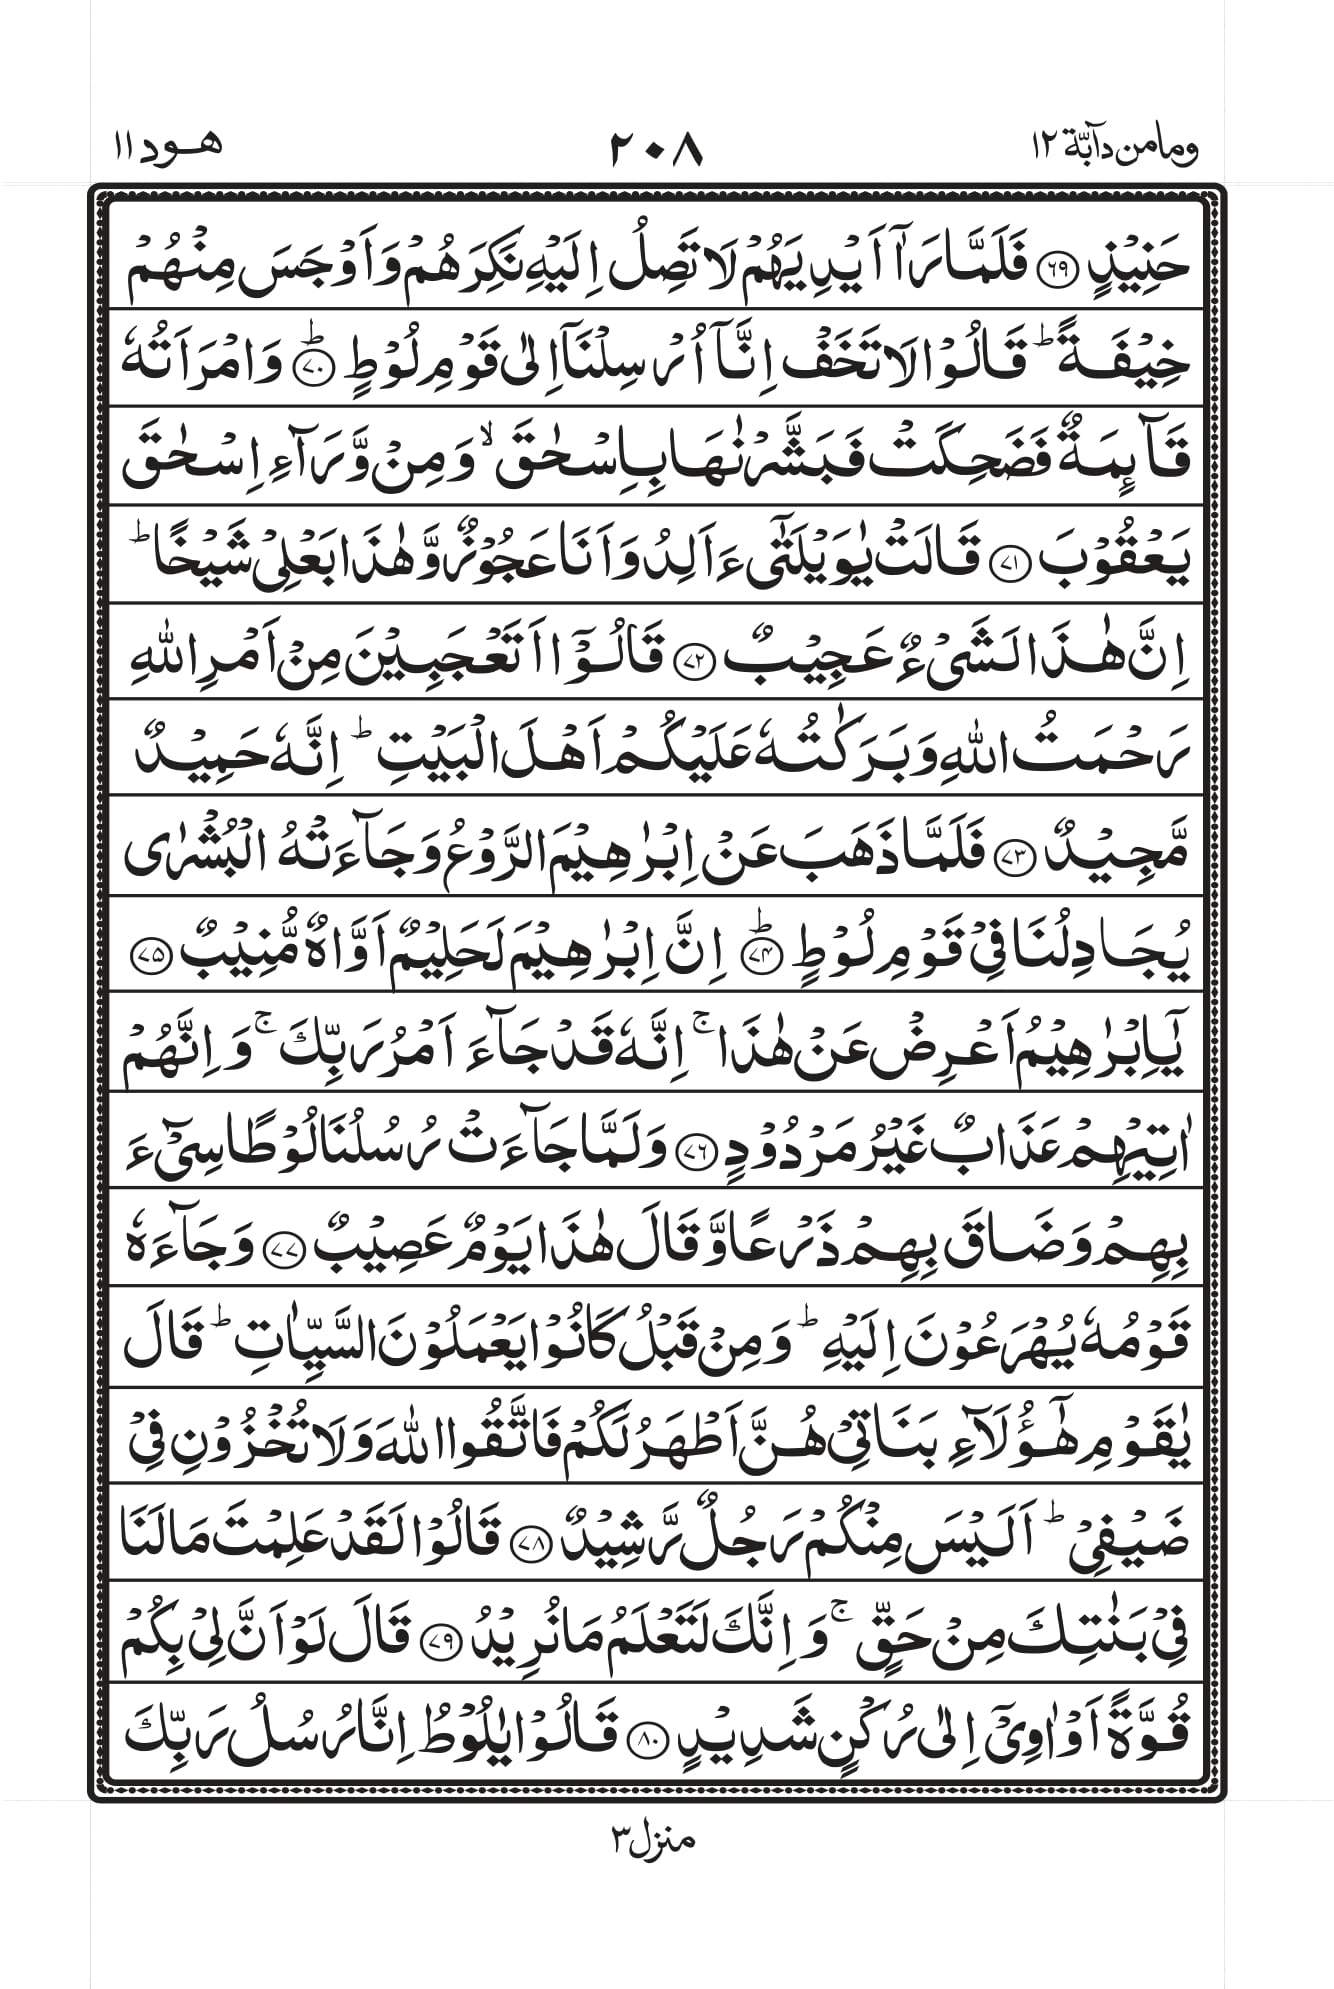 ومامن دآبّة ١٢ ٢٠٨ هود ١١
حَنِيْذٍ ﴿۶۹﴾ فَلَمَّا رَاٰۤ اَيْدِيَهُمْ لَا تَصِلُ اِلَيْهِ نَكِرَهُمْ وَاَوْجَسَ مِنْهُمْ
خِيْفَةً ؕ قَالُوْا لَا تَخَفْ اِنَّاۤ اُرْسِلْنَاۤ اِلٰى قَوْمِ لُوْطٍ ؕ﴿۷۰﴾ وَامْرَاَتُهٗ
قَآىِٕمَةٌ فَضَحِكَتْ فَبَشَّرْنٰهَا بِاِسْحٰقَ ۙ وَمِنْ وَّرَآءِ اِسْحٰقَ
يَعْقُوْبَ ﴿۷۱﴾ قَالَتْ يٰوَيْلَتٰۤى ءَاَلِدُ وَاَنَا عَجُوْزٌ وَّهٰذَا بَعْلِيْ شَيْخًا ؕ
اِنَّ هٰذَا لَشَيْءٌ عَجِيْبٌ ﴿۷۲﴾ قَالُوْۤا اَتَعْجَبِيْنَ مِنْ اَمْرِ اللّٰهِ
رَحْمَتُ اللّٰهِ وَبَرَكٰتُهٗ عَلَيْكُمْ اَهْلَ الْبَيْتِ ؕ اِنَّهٗ حَمِيْدٌ
مَّجِيْدٌ ﴿۷۳﴾ فَلَمَّا ذَهَبَ عَنْ اِبْرٰهِيْمَ الرَّوْعُ وَجَآءَتْهُ الْبُشْرٰى
يُجَادِلُنَا فِيْ قَوْمِ لُوْطٍ ؕ﴿۷۴﴾ اِنَّ اِبْرٰهِيْمَ لَحَلِيْمٌ اَوَّاهٌ مُّنِيْبٌ ﴿۷۵﴾
يٰۤاِبْرٰهِيْمُ اَعْرِضْ عَنْ هٰذَا ۚ اِنَّهٗ قَدْ جَآءَ اَمْرُ رَبِّكَ ۚ وَاِنَّهُمْ
اٰتِيْهِمْ عَذَابٌ غَيْرُ مَرْدُوْدٍ ﴿۷۶﴾ وَلَمَّا جَآءَتْ رُسُلُنَا لُوْطًا سِيْٓءَ
بِهِمْ وَضَاقَ بِهِمْ ذَرْعًا وَّقَالَ هٰذَا يَوْمٌ عَصِيْبٌ ﴿۷۷﴾ وَجَآءَهٗ
قَوْمُهٗ يُهْرَعُوْنَ اِلَيْهِ ؕ وَمِنْ قَبْلُ كَانُوْا يَعْمَلُوْنَ السَّيِّاٰتِ ؕ قَالَ
يٰقَوْمِ هٰۤؤُلَآءِ بَنَاتِيْ هُنَّ اَطْهَرُ لَكُمْ فَاتَّقُوا اللّٰهَ وَلَا تُخْزُوْنِ فِيْ
ضَيْفِيْ ؕ اَلَيْسَ مِنْكُمْ رَجُلٌ رَّشِيْدٌ ﴿۷۸﴾ قَالُوْا لَقَدْ عَلِمْتَ مَا لَنَا
فِيْ بَنٰتِكَ مِنْ حَقٍّ ۚ وَاِنَّكَ لَتَعْلَمُ مَا نُرِيْدُ ﴿۷۹﴾ قَالَ لَوْ اَنَّ لِيْ بِكُمْ
قُوَّةً اَوْ اٰوِيْۤ اِلٰى رُكْنٍ شَدِيْدٍ ﴿۸۰﴾ قَالُوْا يٰلُوْطُ اِنَّا رُسُلُ رَبِّكَ
منزل ٣